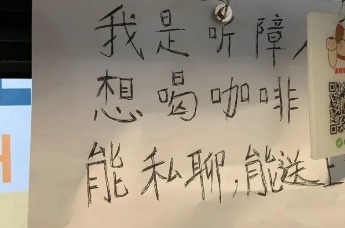 我是听障人
想喝咖啡
能私聊,能送上